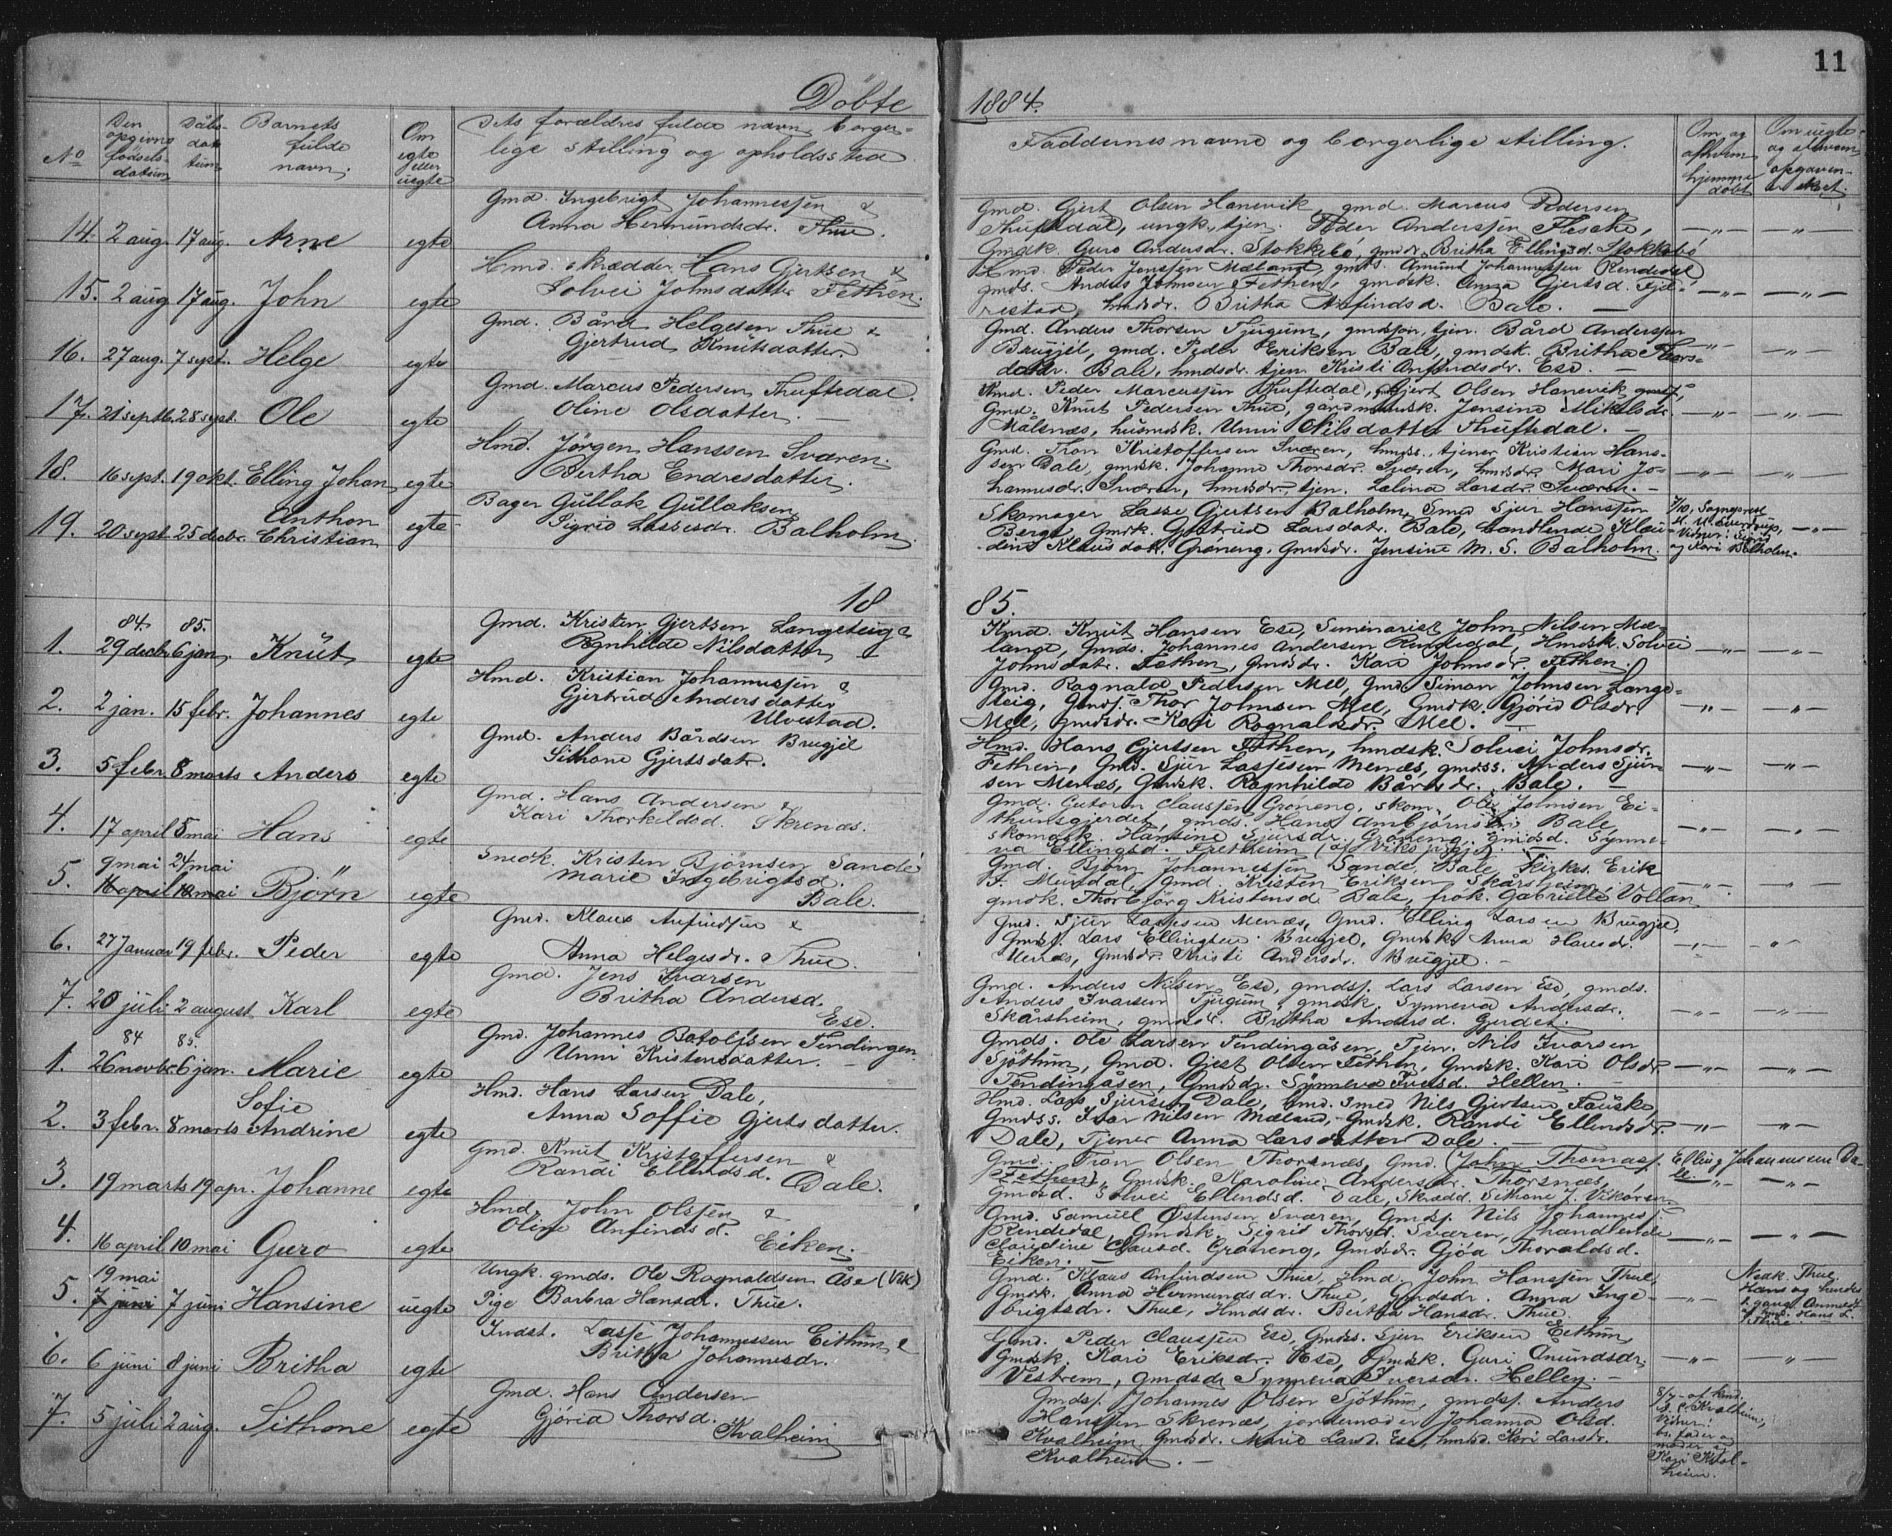 11
Döbte 1884.
No
Den opgivne fødsels-datum
Dåbs-datum
Barnets fulde navn.
Om egte eller uegte
Dets forældres fulde navn, borger-
lige stilling og opholdssted
Faddernes navne og borgerlige stilling.
Om og af hvem hjemme døbt
14. 2 aug. 17 aug. Arne egte
Gmd. Ingebrigt Johannessen &
Anna Hermundsdr. Thue.
Gmd. Gjert Olsen Hanevik, gmd. Marcus Pedersen
Thuftedal, ungk. tjen. Peder Anderssen Feske,
Gmdsk. Guro Andersdr. Stokkebö, gmdsdr. Britha Ellingsd. Stokkebö
15. 2 aug. 17 aug. John egte
Hmd. skrædder Hans Gjertsen &
Solvei Johnsdatter Fethen.
Hmd. Peder Jenssen Mæland, gmds. Amund Johannessen Rendedal
gmds. Anders Johnsen Fethen, gmdsk. Anna Gjertsd. Fjæ-
restad, hmdsdr. Britha Anfindsd. Bale. —
16. 27 aug. 7 sept. Helge egte
Gmd. Bård Helgesen Thue &
Gjertrud Knutsdatter.
Gmd. Anders Thorsen Tjugum, gmdssøn, tjen. Bård Anderssen
Brugjel, gmd. Peder Eriksen Bale, gmdsk. Britha Thors-
datr. Bale, hmdsdr. tjen. Kristi Anfindsdr. Ese. —
17. 21 septbr. 28 sept. Ole egte
Gmd. Marcus Pedersen Thuftedal.
Oline Olsdatter. —
Kmd. Peder Marcussen Thuftedal, Gjert Olsen Hanevik,
Gmd. Knut Pedersen Thue, gardmandsk. Jensine Mikelsdr
Målsnæs, husmdsk. Unni Nilsdatter Thuftedal. —
18. 16 sept. 19 okt. Elling Johan egte
Hmd. Jörgen Hanssen Sværen.
Bertha Endresdatter.
Gmd. Tron Kristoffersen Sværen, hmds., tjener Kristian Hans-
sen Dale, gmdsk. Johanne Thorsdr. Sværen, hmdsdr. Mari Jo-
hannesdr. Sværen, hmdsdr., tjen. Lalina Larsdr. Sværen. —
19. 20 sept. 25 decbr. Anthon Christian egte
Bager Gullak Gullaksen
Sigrid Lassesdr. Balholm.
Skomager Lasse Gjertsen Balholm, Gmd Sjur Hanssen
Berge, Gmdk. Gjertrud Larsdatr. Bale, handlende Klau-
dine Klausdatr. Grøneng, Gmdsdr. Jensine M. S. Balholm.
1885.
1. 84 29 decbr. 85. 6 jan. Knüt egte
Gmd. Kristen Gjertsen Langeteig &
Ragnhilde Nilsdatter —
Kmd. Knut Hansen Ese, Seminarist John Nilsen Mæ-
lange, Gmds. Johannes Andersen Rendedal, Hmdsk. Solvei
Johnsdatr. Fethen, Gmdsdr. Kari Johnsdr. Fethen.
2. 2 jan. 15 febr. Johannes egte
Hmd. Kristian Johannessen &
Gjertrud Andersdatter
Ulvestad.
Gmd. Ragnald Pedersen Mel, Gmd. Simon Johnsen Lange-
teig, Gmdsf. Thor Johnsen Mel, Gmdk. Gjörid Olsdr.
Mel, Gmdsdr. Kari Ragnaldsdr. Mel. —
3. 5 febr. 8 marts Anders egte
Gmd. Anders Bårdsen Brugjel
Sithone Gjertsdatr.
Hmd. Hans Gjertsen Fethen, hmdsk. Solvei Johnsdr.
Fethen, Gmd. Sjur Lassesen Menæs, gmdss. Anders Sjur-
sen Menæs, Gmdsk. Ragnhilde Bårdsdr. Bale. —
4. 17 april 5 mai Hans egte
Gmd. Hans Andersen &
Kari Thorkildsd. Skrenæs.
Gmd. Gutorm Claussen Grøneng, skom. Ole Johnsen Ei-
thunsgjerdet, gmds. Hans Ambjörnsen Bale
skomdsk. Hansine Sjursdr. Grøneng, gmdsd. Synne-
va Ellingsd. Fretheim
5. 9 mai 24 mai
16 april 10 mai Bjørn egte
Snedk. Kristen Bjørnsen Sande
Marie Ingebrigtsd.
Bale.
Gmd. Bjørn Johannessen Sande, Bale, Erik
T. Mundal, Gmd. Kristen Eriksen Skarsheim
gmdk. Thorbjørg Kristensd Bale, frøk. Gabrielle Vollan
6. 27 Januar 19 febr. Peder egte
Gmd. Klaus Anfindsen &
Anna Helgesdr. Thue.
Gmd. Sjur Lassesen Menæs, Gmd. Elling Larsen Brugjel,
Gmdsf. Lars Ellingsen Brugjel, Gmdsk. Anna Hansdr.
Menæs, Gmdsdr. Kristi Andersdr. Brugjel. —
7. 20 juli 2 august Karl egte
Gmd. Jens Ivarsen
Britha Andersd.
Ese.
Gmd. Anders Nilsen Ese, gmdsf. Lars Larsen Ese, gmds.
Anders Ivarsen Tjugum, gmdsk. Synneva Andersdr.
Skårsheim, gmdsdr. Britha Andersd. Gjerdet.
1. 84 26 novbr. 85. 6 jan. Marie egte
Gmd. Johannes Botolfsen Tendingen
Unni Kristensdatter. —
Gmds. Ole Larsen Tendingåsen, Tjen. Nils Ivarsen
Sjøthun, Gmd. Gjest Olsen Fethen, Gmdsk. Kari Olsdr.
Tendingåsen, Gmdsdr. Synneva Iversd. Hellen. —
2. 3 febr. 8 marts Sofie Andrine egte
Hmd. Hans Larsen Dale,
Anna Soffie Gjertsdatter.
Hmd. Lars Sjursen Dale, Hmd. Smed Nils Gjertsen Fauske,
Gmdss. Ivar Nilsen Mæland, Gmdsk. Randi Ellendsdr.
Dale, Tjener Anna Larsdatter Dale. —
3. 19 marts 19 apr. Johanne egte
Gmd. Knut Kristoffersen &
Randi Ellendsd. Dale.
Gmd. Tron Olsen Thorsnæs, Gmd. (John Thomass.
Fethen), Gmdsk. Karoline Andersdr. Thorsnæs,
Gmdsd. Solvei Ellendsd. Dale, Skrædd. Sithone J. Vikøren
Elling Johannessen Da-
le.
4. 16 april 10 mai Guro egte
Hmd. John Olsen &
Oline Anfindsd.
Eiken.
Gmd. Samuel Østensen Sværen, Gmdsf. Nils Johanness.
Rendedal, Gmdsk. Sigrid Thorsd. Sværen, handlende
Claudine Clausd. Grøneng, Gmdsdr. Gjøa Thoraldsd.
Eiken. —
5. 19 mai
7 juni 7 juni Hansine uegte
Ungk. gmds. Ole Ragnaldsen Åse (Vik)
Pige Barbra Hansdr. Thue.
Gmd. Klaus Anfindsen Thue, Hmd. John Hanssen Thue,
Gmdsk. Anna Hermundsdr. Thue, Gmdsdr. Anna Inge-
brigtsdr. Thue, Hmdsdr. Bertha Hansdr. Thue
6. 6 juni 8 juni Britha egte
Indst. Lasse Johannessen Eithun &
Britha Johannesdr.
Gmd. Peder Claussen Ese, Gmds. Sjur Eriksen Eithun,
Gmdsk. Kari Eriksdr. Ese, Gmdsk. Guri Amundsdr.
Vestrem, gmdsdr Synneva Iversdr. Hellen. —
7. 5 juli 2 aug. Sithone egte
Gmd. Hans Andersen
Gjöria Thorsd.
Kvalheim
Gmdsf. Johannes Olsen Sjöthun, gmdsf. Anders
Hanssen Skrenæs, jordemoder Johanna Olsd.
Kvalheim, Gmdsdr. Marie Larsd. Ese, hmdsd. Kari Larsdr.
Kvalheim. —